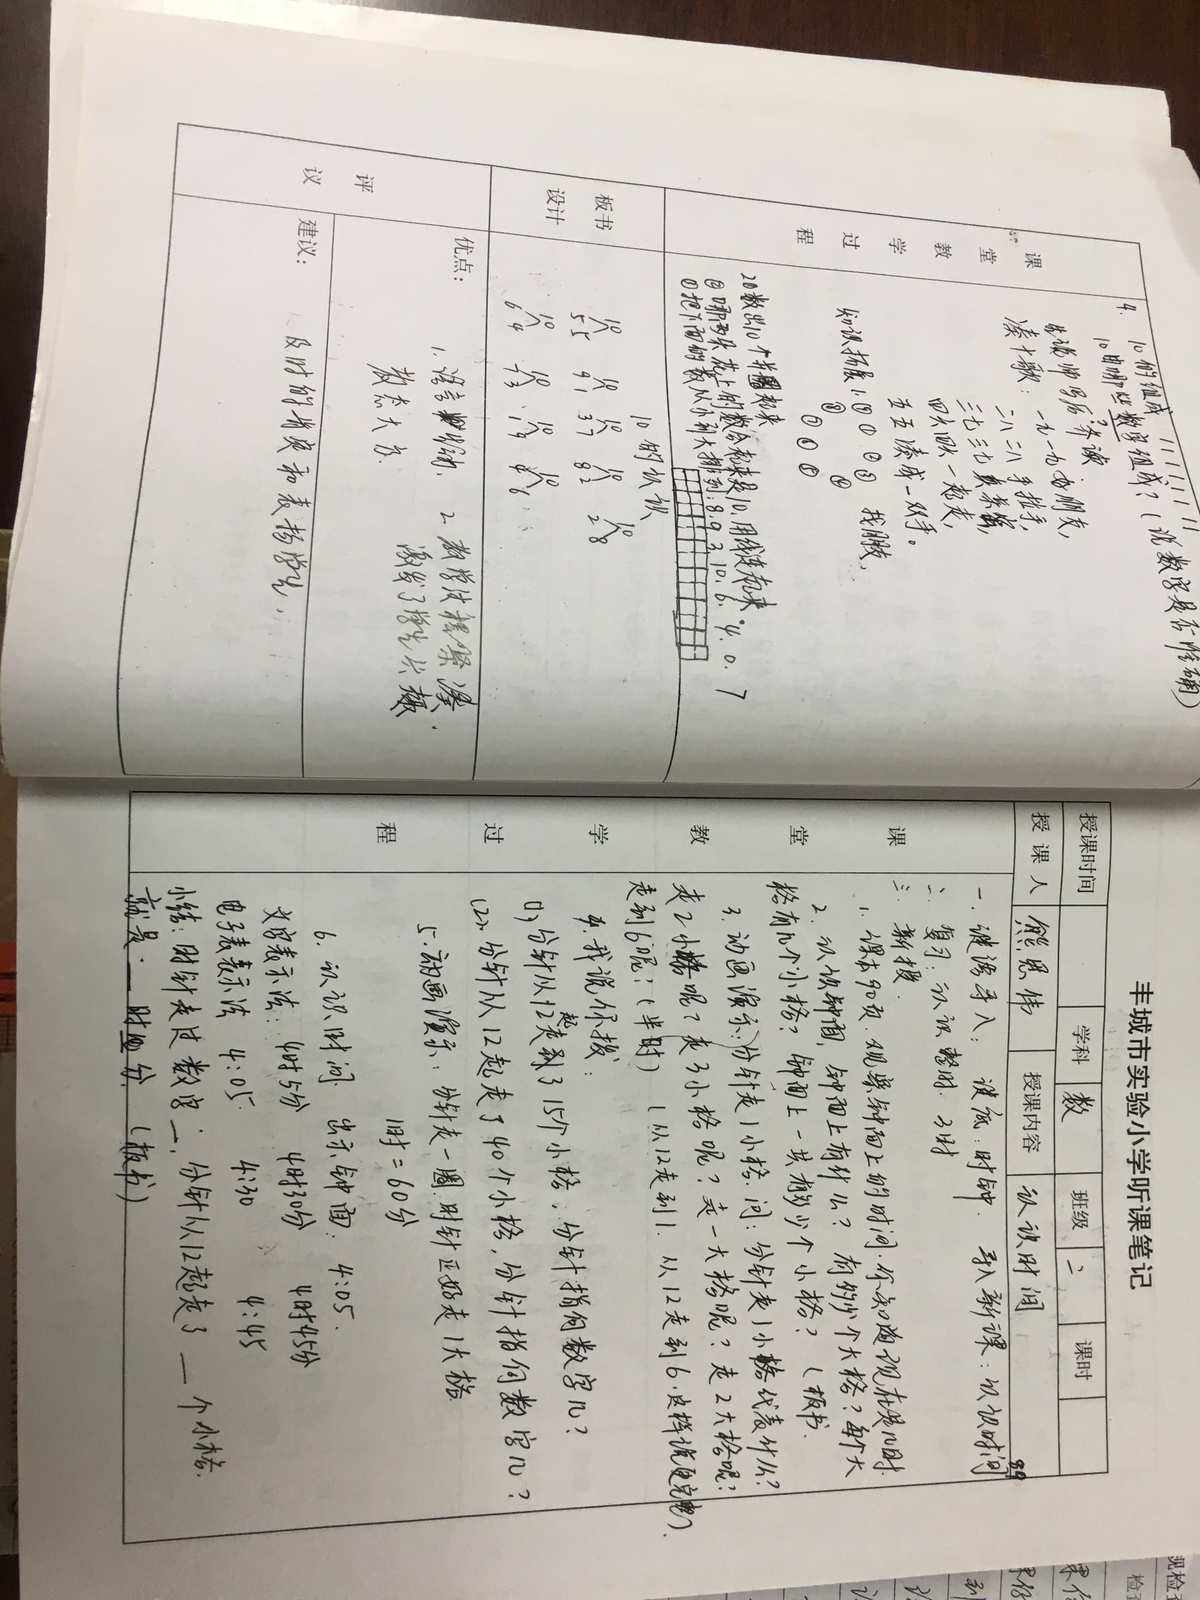 4. 10的组成
10由哪些数字组成?(说数字是否准确)
凑十歌: 一九一九好朋友,
二八二八手拉手,
三七三七真亲密,
四六四六一起走,
五五凑成一双手。
知识拓展
找朋友,
20数出10个并圈起来
②哪两朵花上的数合起来是10,用线连起来。
①把下面的数从小到大排列:8.9.3.10.6.4.0.7
课
堂
教
学
过
程
板书
设计
10的认识
10 10 10 10 10
5 5 9 1 3 7 8 2 2 8
评
议
优点:
1. 语言
教态大方.
2. 教学
激发了学生兴趣
建议:
及时的 和表扬学生
丰城市实验小学听课笔记
授课时间 学科 数 班级 二 课时
授课人 熊思伟 授课内容 认识时间
课
堂
教
学
过
程
一. 谜语导入: 谜底:时钟. 导入新课:认识时间
二. 复习:认识整时
三. 新授.
1. 课本90页.观察钟面上的时间.你知道现在是几时
2. 认识钟面,钟面上有什么? 有多少个大格?每个大
格有几个小格? 钟面上一共有多少个小格?(板书.
3. 动画演示:分针走1小格.问:分针走1小格代表什么?
走2小格呢?走3小格呢?走一大格呢?走2大格呢?
走到6呢?(半时) (从12走到1. 从12走到6.这样说更完整).
4. 我说你拨:
(1), 分针从12起走到了15个小格,分针指向数字几?
(2). 分针从12起走了40个小格,分针指向数字几?
5. 动画演示:分针走一圈.时针正好走1大格
1时=60分
6. 认识时间 出示钟面: 4:05.
文字表示法: 4时5分 4时30分 4时45分
电子表表示法 4:05. 4:30 4:45
小结: 时针走过数字一, 分针从12起走了 — 个小格.
就是.一时 分 (板书)